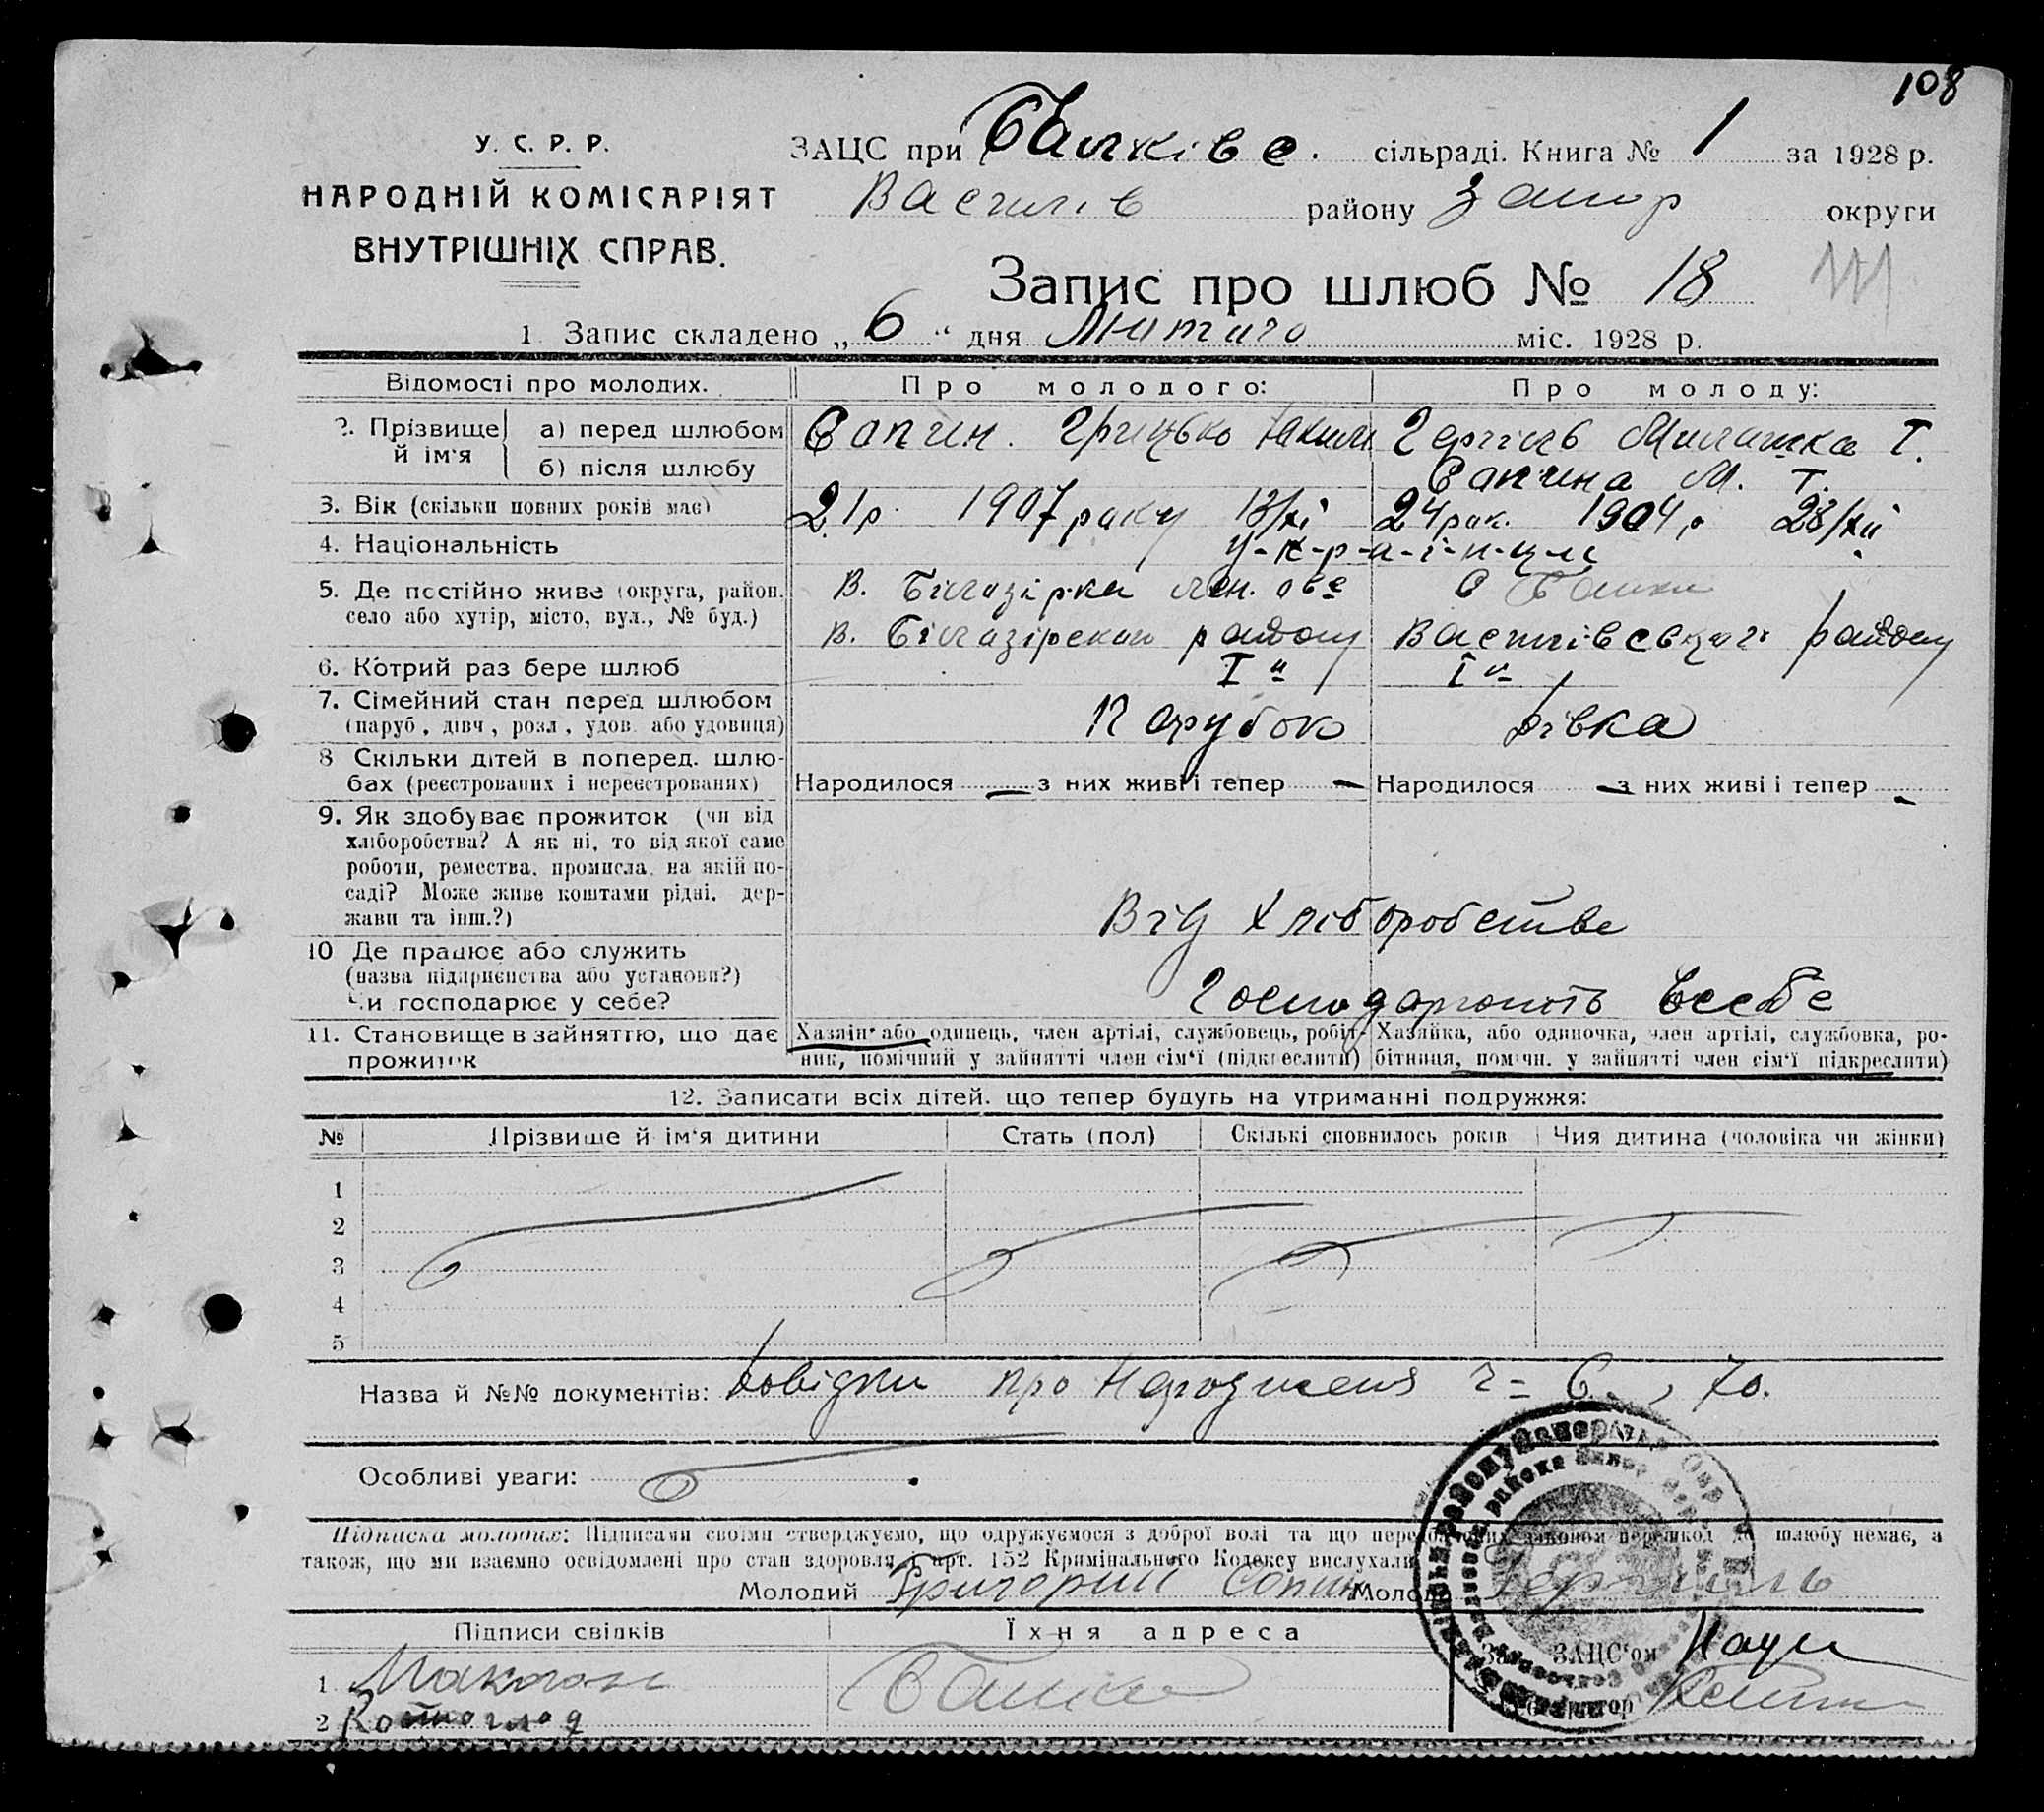 108
У. С. Р. Р.
НАРОДНІЙ КОМІСАРІЯТ
ВНУТРІШНІХ СПРАВ.
ЗАЦС при Балківс. сільраді. Книга № 1 за 1928 р.
Василів району Запор округи
Запис про шлюб № 18
1. Запис складено „6“ дня Лютого міс. 1928 р.
Відомості про молодих. Про молодого: Про молоду:
2. Прізвище й ім'я а) перед шлюбом Сапин. Грицько Яким Гергіль Милашка Т.
б) після шлюбу Сапина М. Т.
3. Вік (скільки повних років має) 21 р. 1907 року 13/XI 24 рок. 1904 р 23/XII
4. Національність У-к-р-а-ї-н-ц-і
5. Де постійно живе (округа, район, село або хутір, місто, вул., № буд.) В. Білазірка С Балки
В. Білазірскаи району Василівського району
6. Котрий раз бере шлюб I й I й
7. Сімейний стан перед шлюбом Парубок Дівка
(паруб., дівч., розл., удов. або удовиця)
8 Скільки дітей в поперед. шлюбах (реєстрованих і нереєстрованих) Народилося — з них живі і тепер — Народилося — з них живі і тепер —
9. Як здобуває прожиток (чи від
хліборобства? А як ні, то від якої саме
роботи, ремества, промисла, на якій по-
саді? Може живе коштами рідні, дер-
жави та інш.?) Від Хліборобства
10 Де працює або служить
(назва підприємства або установи?)
Чи господарює у себе? Господарюють Всебе
11. Становище в зайняттю, що дає прожиток Хазяїн або одинець, член артілі, службовець, робіт- Хазяйка, або одиночка, член артілі, службовка, ро-
ник, помічний у зайнятті член сім'ї (підкреслити) бітниця, помічн. у зайнятті член сім'ї підкреслити)
12. Записати всіх дітей, що тепер будуть на утриманні подружжя:
№ Прізвище й ім'я дитини Стать (пол) Скількі сповнилось років Чия дитина (чоловіка чи жінки)
1
2
3
4
5
Назва й №№ документів: Довідки про Народження 2 = 6, 70.
Особливі уваги:
Підписка молодих: Підписами своїми стверджуємо, що одружуємося з доброї волі та що законом перешкод до шлюбу немає, а
також, що ми взаємно освідомлені про стан здоровля і арт. 152 Кримінального Кодексу вислухали
Молодий Григорий Сопин Молод
Підписи свідків Їхня адреса
За ЗАЦС'ом
1 Макаон Балки
2 Костоглод